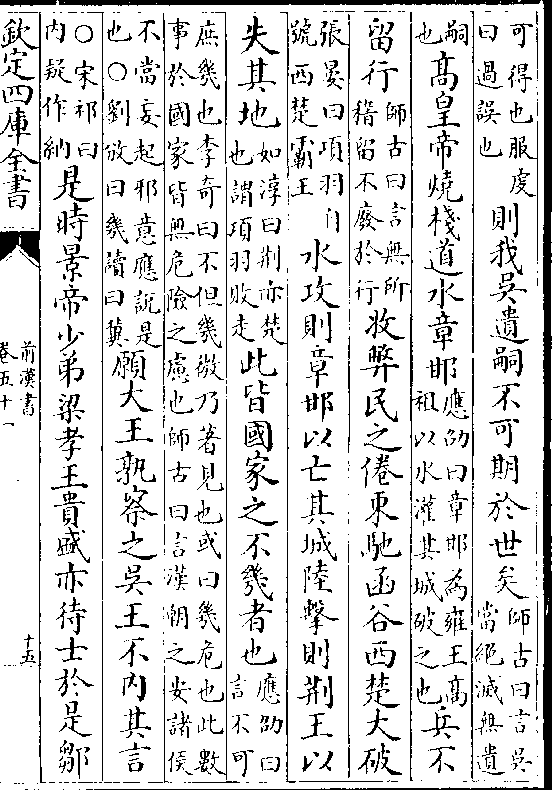 可得也服虔
曰過誤也
則我吳遺嗣不可期於世矣
師古曰言吳
當絕滅無遺
嗣
也
高皇帝燒棧道水章邯
應劭曰章邯為雍王高
祖以水灌其城破之也
兵不
留行
師古曰言無所
稽留不廢於行
收弊民之倦東馳函谷西楚大破
張晏曰項羽自
號西楚霸王
水攻則章邯以亡其城陸擊則荆王以
失其地
如淳曰荆亦楚
也謂項羽敗走
此皆國家之不幾者也
應劭曰
言不可
庶幾也李奇曰不但幾微乃著見也或曰幾危也此數
事於國家皆無危險之慮也師古曰言漢朝之安諸侯
不當妄起邪意應說是
也○劉攽曰幾讀曰冀
願大王孰察之吳王不内其言
○宋祁曰
内疑作納
是時景帝少弟梁孝王貴盛亦待士於是鄒
欽定四庫全書
前漢書
卷五十一
十五